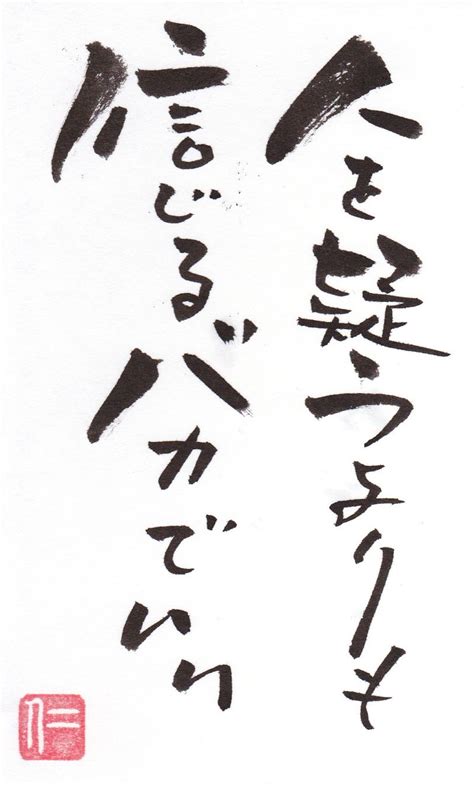 人を疑うよりも
信じるバカでいい
仁